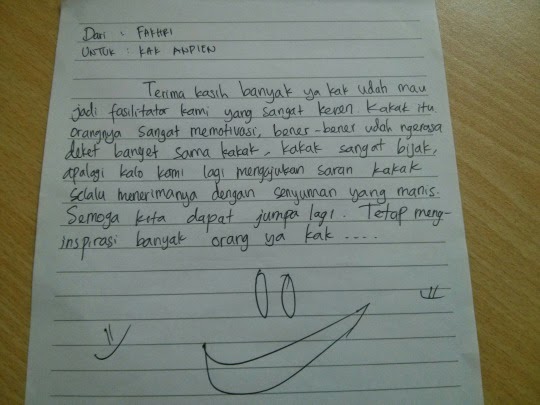 Dari : FAKHRI
UNTUK : KAK ANPIEN
Terima kasih banyak ya kak udah mau
jadi fasilitator kami yang sangat keren kakak itu
orangnya sangat memotivasi, bener-bener udah ngerasa
deket banget sama kakak, kakak sangat bijak,
apalagi kalo kami lagi mengajukan saran kakak
selalu menerimanya dengan senyuman yang manis.
Semoga kita dapat jumpa lagi. Tetap meng-
inspirasi banyak orang ya kak ....